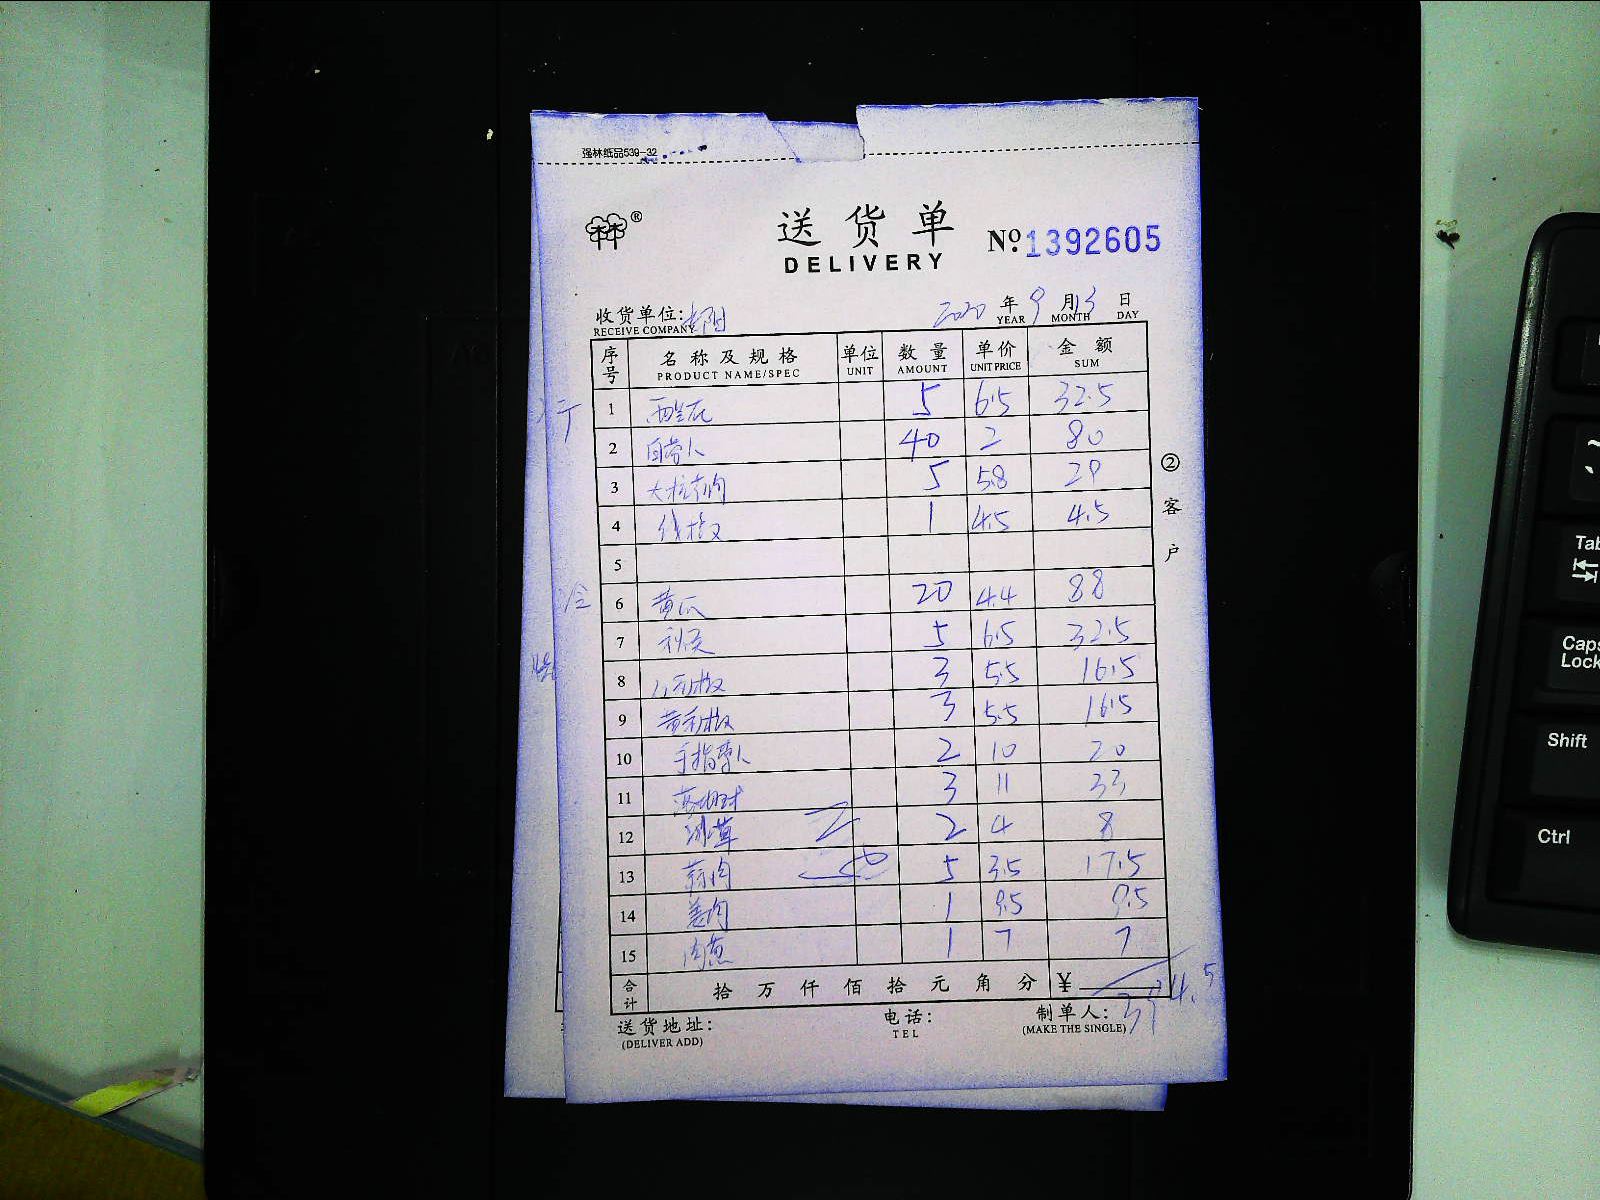 强林纸品539-32
®
送货单
DELIVERY
№ 1392605
收货单位:
RECEIVE COMPANY
2020 年 9 月 13 日
YEAR MONTH DAY
序号 名称及规格 单位 数量 单价 金额
PRODUCT NAME/SPEC UNIT AMOUNT UNIT PRICE SUM
1 西兰花 5 6.5 32.5
2 40 2 80
3 5 5.8 29
4 线椒 1 4.5 4.5
5
6 黄瓜 20 4.4 88
7 秋葵 5 6.5 32.5
8 3 5.5 16.5
9 黄彩椒 3 5.5 16.5
10 2 10 20
11 3 11 33
12 冰草 2 4 8
13 蒜肉 5 3.5 17.5
14 姜肉 1 9.5 9.5
15 肉葱 1 7 7
合计 拾万仟佰拾元角分 ¥
394.5
送货地址:
(DELIVER ADD)
电话:
TEL
制单人:
(MAKE THE SINGLE)
②客户
冷
Tab
Caps Lock
Shift
Ctrl